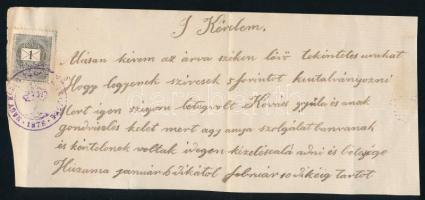 I Kérelem.
Alásan kérem az árva széken lévö tekintetes urakat
Hogy legyenek szivesek 5 forintot kiutalványozni
Mert igen szigoru letegvolt Kovács gyula és anak
gondviselés kelet mert agy anya szolgálat banvanak
és köntelenek voltak idegen kezelésealá adni és betegsége
Huzama január 6 dikától februar 10 dikéig tartot
1878